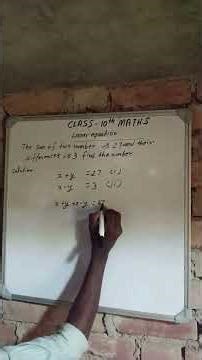 CLASS - 10th MATHS
Linear equation
The sum of two number is 27 and their
difference is 3 find the number
Solution
x+y = 27 (i)
x-y = 3 (ii)
x+y+x-y =